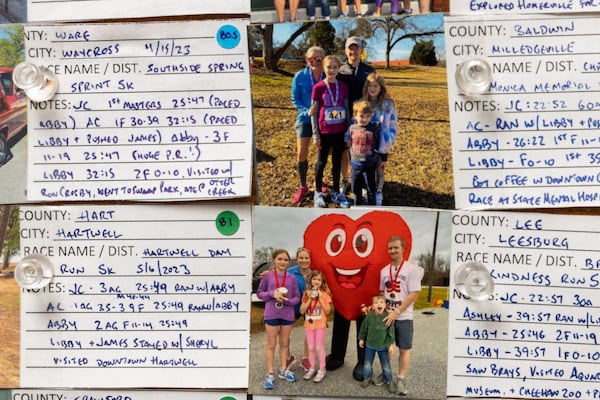 EXPLORED HOMERVILLE FOR
NTY: WARE
80.5
CITY: WAYCROSS 4/15/23
RACE NAME / DIST. SOUTHSIDE SPRING
SPRINT 5K
NOTES: JC 1ST MASTERS 25:47 (PACED
ABBY) AC 1F 30-39 32:15 (PACED
LIBBY + PUSHED JAMES) ABBY - 3F
11-19 25:47 (HUGE P.R.!)
LIBBY 32:15 2F 0-10, VISITED W/
RON CROSBY, WENT TO SWAMP PARK,
OTTER CREEK
421
COUNTY: BALDWIN
CITY: MILLEDGEVILLE
RACE NAME / DIST.
MONICA MEMORIAL
NOTES: JC: 22:52
AC- RAN W/ LIBBY +
ABBY - 26:22 1ST F 11-
LIBBY - F0-10 1ST
GOT COFFEE IN DOWNTOWN
RACE AT STATE MENTAL
COUNTY: HART
81
CITY: HARTWELL
RACE NAME / DIST. HARTWELL DAM
RUN 5K 5/6/2023
NOTES: JC - 3AG 25:49 RAN W/ABBY
AC - 1AG 35-39F 25:49 RAN W/ABBY
ABBY 2AGF 11-14 25:49
LIBBY + JAMES STAYED W/ SHERYL
VISITED DOWNTOWN HARTWELL
COUNTY: LEE
CITY: LEESBURG
RACE NAME / DIST.
KINDNESS RUN 5
NOTES: JC - 22:57
ASHLEY - 39:57 RAN W/
ABBY - 25:46 2F 11-
LIBBY - 39:57 1F 0-10
SAW BRAYS, VISITED
MUSEUM, + CHEEHAW ZOO +
COUNTY: CRAWFORD
COUNTY: